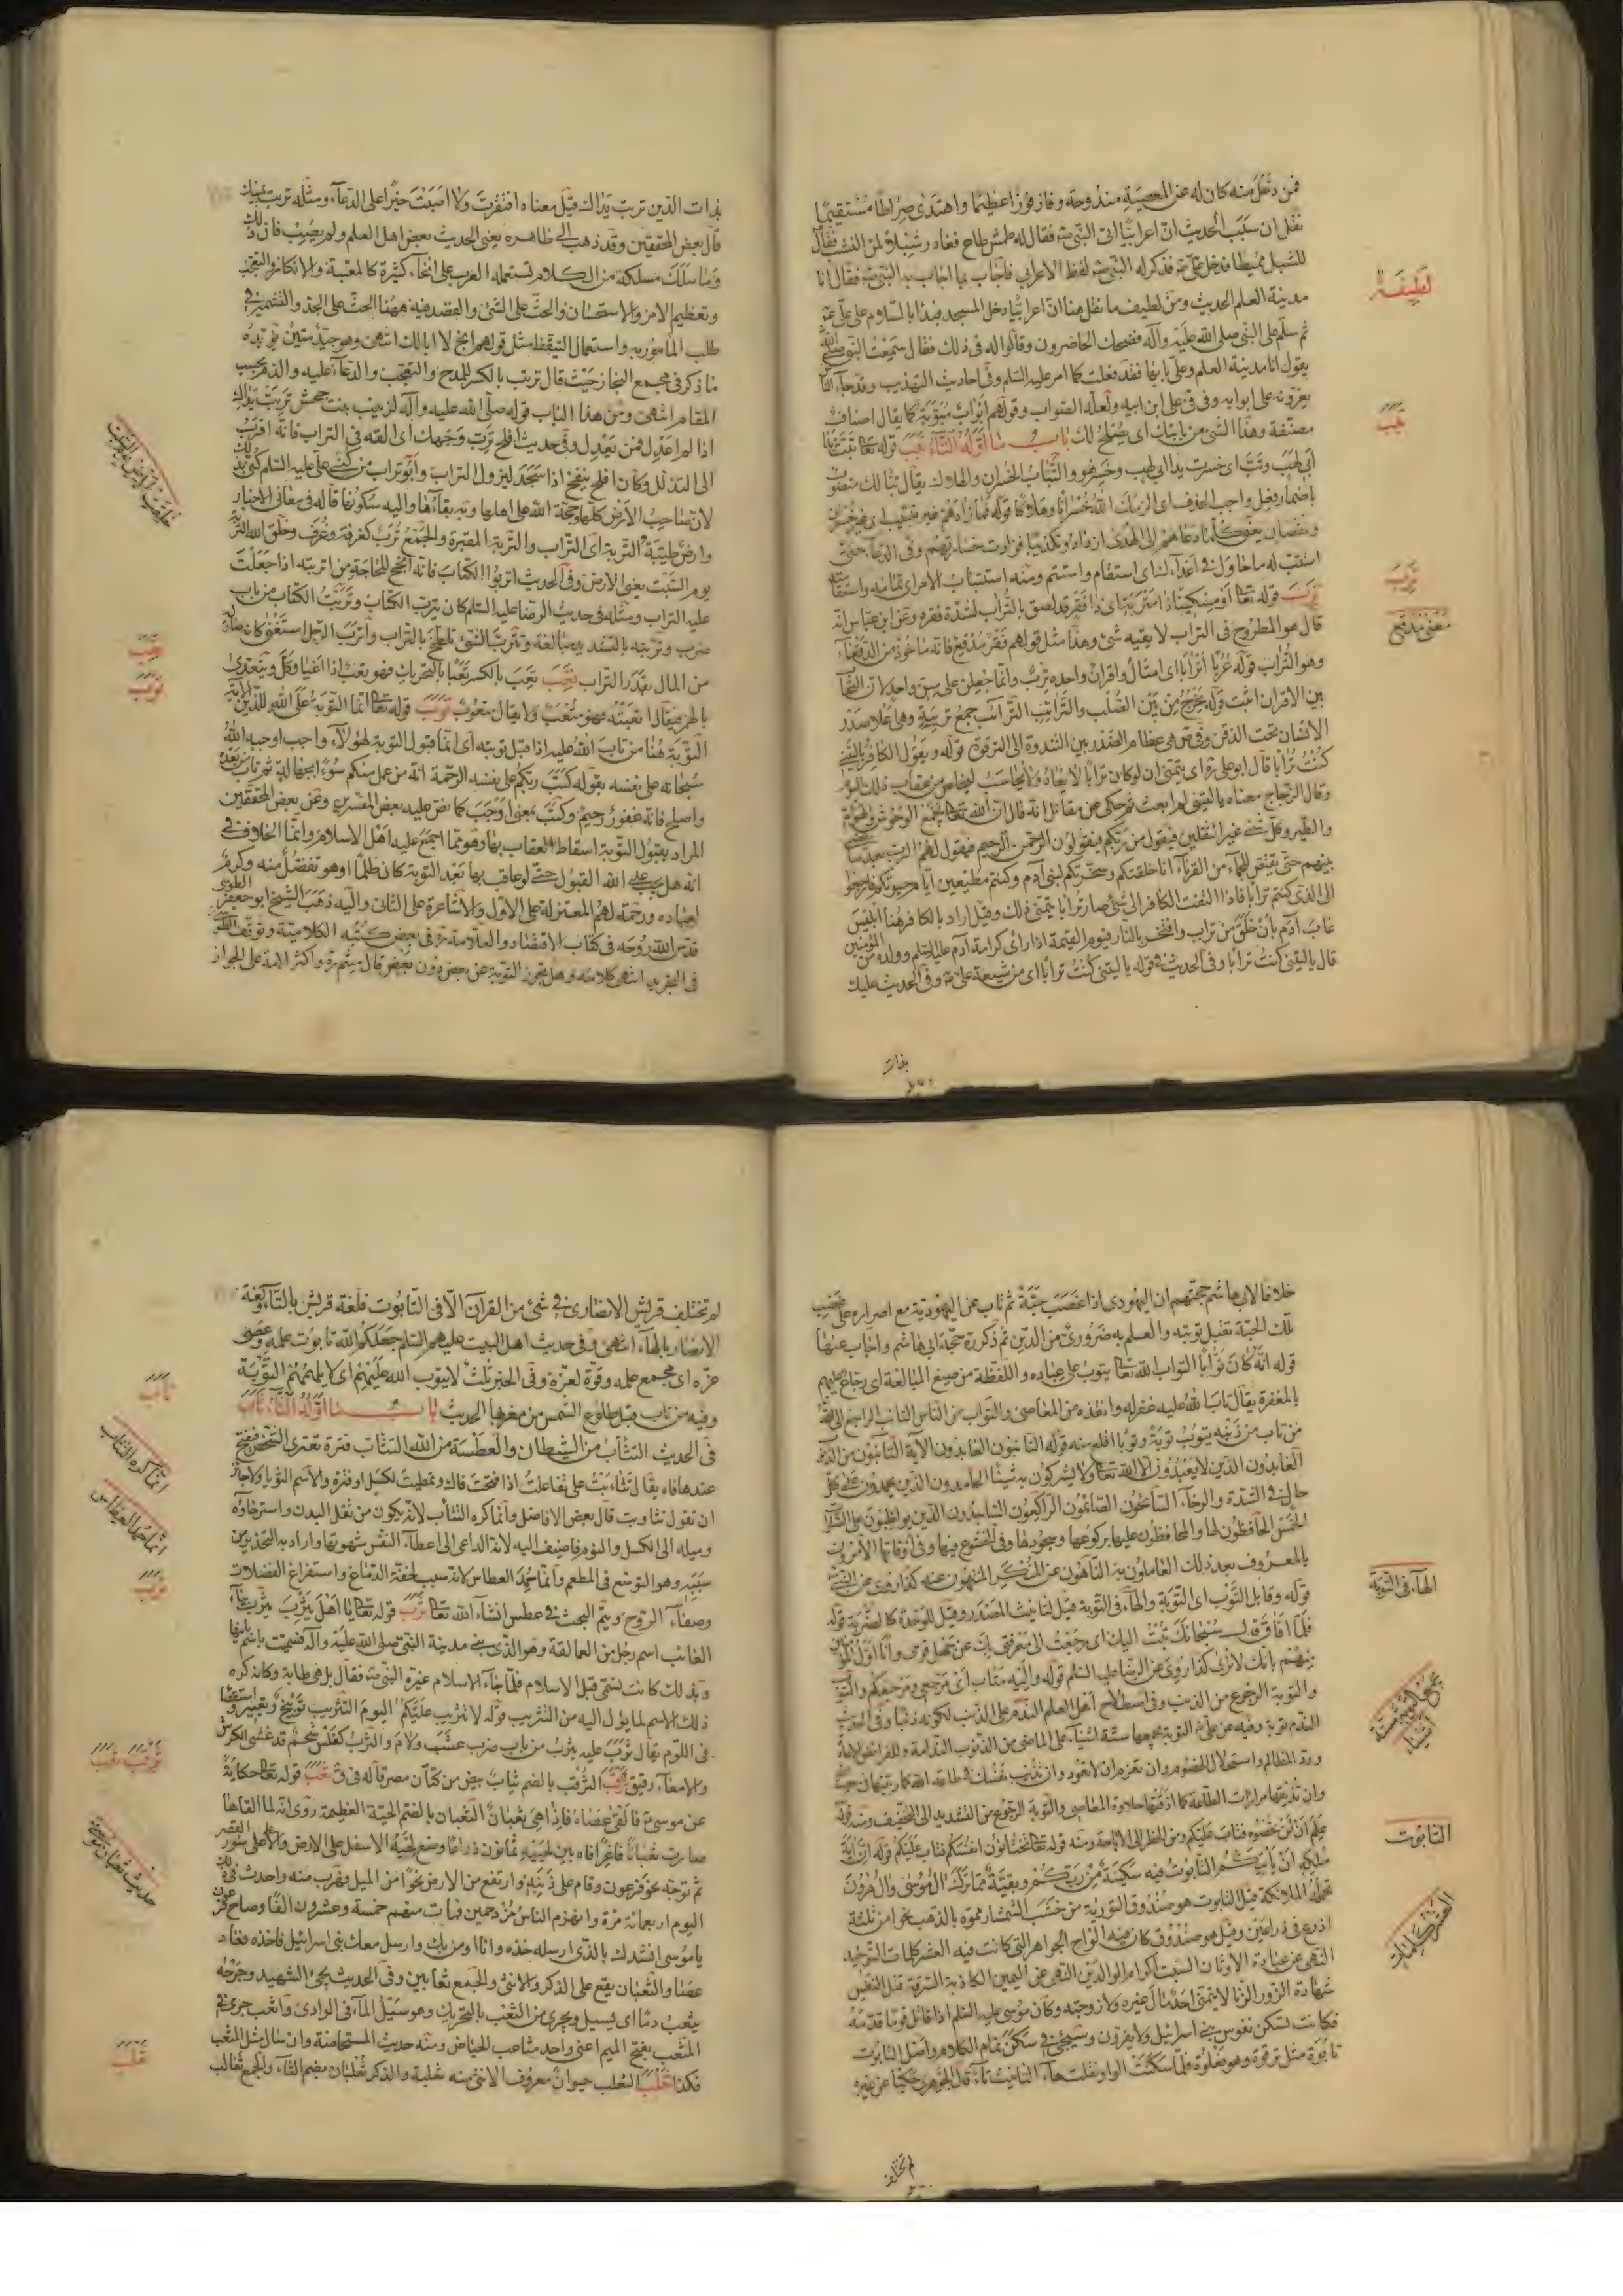 فمن دخل منه كان له عن المعصية مندوحة وفاز فوزا عظيما واهتدى صراطا مستقيما
نقل ان سبب الحديث ان اعرابيا اتى النبي ص فقال له طمش طاح فغادر شبلا لمن النشب فقال
للشبل مميطا فدخل علي ع فذكر له النبي ص لفظ الاعرابي فاجاب بما اجاب به النبي ص فقال انا
لطيفة
مدينة العلم الحديث ومن لطيف ما نقل هنا ان اعرابيا دخل المسجد فبدأ بالسلام على علي ع
ثم سلم على النبي صلى الله عليه وآله فضحك الحاضرون وقالوا له في ذلك فقال سمعت النبي صلى الله
يقول انا مدينة العلم وعلي بابها فقد فعلت كما امر عليه السلم وفي احاديث التهذيب وقد جاء
يعرفونه على ابوابه وفي على ابن ابيه ولعله الصواب وقولهم ابواب مبوبة كما يقال اصناف
تبب
مصنفة وهذا الشئ من بابتك اى يصلح لك باب ما اوله التاء تبب قوله تعا تبت يدا
ابي لهب وتب اى خسرت يدا ابي لهب وخسر هو والتباب الخسران والهلاك يقال تبا لك منصوب
باضمار فعل واجب الحذف اى الزمك الله خسرانا وهلاكا قوله فما زادهم غير تتبيب اى غير تخسير
ونقصان يعنى كلما دعاهم الى الهدى ازدادوا تكذيبا فزادت خسارتهم وفي الدعاء حتى
استتب له ما حاول في اعدائك اى استقام واستتم ومنه استتباب الامر اى تمامه واستقامته
ترب
ترب قوله تعا او مسكينا ذا متربة اى ذا فقر قد لصق بالتراب لشدة فقره وعن ابن عباس انه
معنى مدقع
قال هو المطروح في التراب لا يقيه شئ وهذا مثل قولهم فقر مدقع فانه ماخوذ من الدقعاء
وهو التراب قوله عربا اترابا اى امثالا واقرانا واحده ترب وانما جعلن على سن واحد لان التحاب
بين الاقران اثبت قوله يخرج من بين الصلب والترائب الترائب جمع تريبة وهي اعلا صدر
الانسان تحت الذقن وفي ص هي عظام الصدر بين الثندوة الى الترقوة قوله ويقول الكافر يا ليتني
كنت ترابا قال ابو علي ره اى يتمنى ان لو كان ترابا لا يعاد ولا يحاسب ليخلص من عقاب ذلك اليوم
وقال الزجاج معناه يا ليتني لم ابعث ثم حكى عن مقاتل انه قال ان الله تعا يجمع الوحوش والهوام
والطير وكل شئ غير الثقلين فيقول من ربكم فيقولون الرحمن الرحيم فيقول لهم الرب بعد ما يقضي
بينهم حتى يقتص للجماء من القرناء انا خلقتكم وسخرتكم لبني آدم وكنتم مطيعين ايام حيوتكم فارجعوا
الى الذى كنتم ترابا فاذا التفت الكافر الى شئ صار ترابا يتمنى ذلك وقيل اراد بالكافر هنا ابليس
عاب آدم بان خلق من تراب وافتخر بالنار فيوم القيمة اذا راى كرامة آدم عليه السلم وولده المؤمنين
قال يا ليتني كنت ترابا وفي الحديث في قوله يا ليتني كنت ترابا اى من شيعة علي ع وفي الحديث عليك
بذات
بذات الدين تربت يداك قيل معناه افتقرت ولا اصبت خيرا على الدعاء ومثله تربت يمينك
قال بعض المحققين وقد ذهب الى ظاهره يعني الحديث بعض اهل العلم ولم يصب فان ذلك
وما سلك مسلكه من الكلام تستعمله العرب على انحاء كثيرة كالمعتبة والانكار والتعجب
وتعظيم الامر والاستحسان والحث على الشئ والقصد فيه ههنا الحث على الجد والتشمير في
طلب المامور به واستعمال التيقظ مثل قولهم انج لا ابا لك انتهى وهو جيد متين يؤيده
ما ذكر في مجمع البحار حيث قال تربت بالكسر للمدح والتعجب والدعاء عليه والذم بحسب
المقام انتهى ومن هذا الباب قوله صلى الله عليه وآله لزينب بنت جحش تربت يداك
اذا لم اعدل فمن يعدل وفي حديث افلح ترب وجهك اى القه في التراب فانه اقرب
الى التذلل وكان افلح ينفخ اذا سجد ليزول التراب وابو تراب من كنى علي عليه السلم كني بذلك
لانه صاحب الارض كلها وحجة الله على اهلها وبه بقاءها واليه سكونها قاله في معاني الاخبار
خلقت الارض يوم السبت
وارض طيبة التربة اى التراب والتربة المقبرة والجمع ترب كغرفة وغرف وخلق الله التربة
يوم السبت يعني الارض وفي الحديث اتربوا الكتاب فانه انجح للحاجة من اتربته اذا جعلت
عليه التراب ومثله في حديث الرضا عليه السلم كان يترب الكتاب وتربت الكتاب من باب
ضرب وتربته بالتشديد مبالغة وتترب الشئ تلطخ بالتراب واترب الرجل استغنى كانه صار له
تعب
من المال بقدر التراب تعب تعب بالكسر تعبا بالتحريك فهو تعب اذا اعيا وكل ويتعدى
توب
بالهمز فيقال اتعبته فهو متعب ولا يقال متعوب توب قوله تعا انما التوبة على الله للذين الآية
التوبة هنا من تاب الله عليه اذا قبل توبته اى انما قبول التوبة لهؤلاء واجب اوجبه الله
سبحانه على نفسه بقوله كتب ربكم على نفسه الرحمة انه من عمل منكم سوءا بجهالة ثم تاب من بعده
واصلح فانه غفور رحيم وكتب بمعنى اوجب كما نص عليه بعض المفسرين وعن بعض المحققين
المراد بقبول التوبة اسقاط العقاب بها وهو مما اجمع عليه اهل الاسلام وانما الخلاف في
انه هل يجب على الله القبول حتى لو عاقب بها بعد التوبة كان ظلما او هو تفضل منه وكرم
لعباده ورحمة لهم المعتزلة على الاول والاشاعرة على الثاني واليه ذهب الشيخ ابو جعفر الطوسي
قدس الله روحه في كتاب الاقتصاد والعلامة ره في بعض كتبه الكلامية وتوقف
في التجريد انتهى كلامه وهل تجوز التوبة عن بعض دون بعض قال ميثم ره واكثر الامة على الجواز
خلافا لابي هاشم حجتهم ان اليهودى اذا غصب حبة ثم تاب عن اليهودية مع اصراره على غصب
تلك الحبة تقبل توبته والعلم به ضرورى من الدين ثم ذكر ره حجة ابي هاشم واجاب عنها
قوله انه كان توابا التواب الله تعا يتوب على عباده واللفظة من صيغ المبالغة اى رجاع عليهم
بالمغفرة يقال تاب الله عليه غفر له وانقذه من المعاصى والتواب من الناس التائب الراجع الى الله
من تاب من ذنبه يتوب توبة وتوبا اقلع منه قوله التائبون العابدون الآية التائبون من الذنوب
العابدون الذين لا يعبدون الا الله تعا ولا يشركون به شيئا الحامدون الذين يحمدون على كل
حال في الشدة والرخاء السائحون الصائمون الراكعون الساجدون الذين يواظبون على الصلوات
الخمس الحافظون لها والمحافظون عليها بركوعها وسجودها وفي الخشوع فيها وفي اوقاتها الآمرون
بالمعروف بعد ذلك العاملون به الناهون عن المنكر المنتهون عنه كذا روى عن
الهاء في التوبة
قوله وقابل التوب اى التوبة والهاء في التوبة قيل لتانيث المصدر وقيل للوحدة كالضربة قوله
فلما افاق قال سبحانك تبت اليك اى رجعت الى معرفتي بك عن جهل قومى وانا اول المؤمنين
منهم بانك لا ترى كذا روى عن الرضا عليه السلم قوله واليه متاب اى مرجعى ومرجعكم والتوب
والتوبة الرجوع من الذنب وفي اصطلاح اهل العلم الندم على الذنب لكونه ذنبا وفي الحديث
يجمع التوبة ستة اشياء
الندم توبة وفيه عن علي ع التوبة يجمعها ستة اشياء على الماضى من الذنوب الندامة وللفرائض الاعادة
ورد المظالم واستحلال الخصوم وان تعزم ان لا تعود وان تذيب نفسك في طاعة الله كما ربيتها في معصية
وان تذيقها مرارات الطاعة كما اذقتها حلاوة المعاصى والتوبة الرجوع من التشديد الى التخفيف ومنه قوله
علم ان لن تحصوه فتاب عليكم ومن الحظر الى الاباحة ومنه قوله تعا تختانون انفسكم فتاب عليكم قوله ان آية
التابوت
ملكه ان ياتيكم التابوت فيه سكينة من ربكم وبقية مما ترك آل موسى وآل هرون
تحمله الملائكة قيل التابوت هو صندوق التورية من خشب الشمشار مموه بالذهب نحوا من ثلثة
اذرع في ذراعين وقيل هو صندوق كان فيه الواح الجواهر التي كانت فيه العشر كلمات التوحيد
العشر كلمات
النهى عن عبادة الاوثان السبت اكرام الوالدين النهى عن اليمين الكاذبة السرقة قتل النفس
شهادة الزور الزنا لا يتمنى احد مال غيره ولا زوجته وكان موسى عليه السلم اذا قاتل قوما قدمه
فكانت تسكن نفوس بني اسرائيل ولا يفرون وسيجئ في سكن تمام الكلام واصل التابوت
تابوة مثل ترقوة وهو فعلوة فلما سكنت الواو نقلت هاء التانيث تاء قال الجوهرى حكيا عن غيره
لم تختلف
لم تختلف قريش والانصار في شئ من القرآن الا في التابوت فلغة قريش بالتاء ولغة
الانصار بالهاء انتهى وفي حديث اهل البيت عليهم السلم جعلكم الله تابوت علمه وعصى
عزه اى مجمع علمه وقوة لعزه وفي الخبر ثلث لا يتوب الله عليهم اى لا يلهمهم التوبة
ثاب
وفيه من تاب قبل طلوع الشمس من مغربها الحديث باب ما اوله الثاء ثاب
في الحديث التثاب من الشيطان والعطسة من الله التثائب فترة تعترى الشخص فيفتح
عندها فاه يقال تثاءبت على تفاعلت اذا فتحت فاك وتمطيت لكسل او فترة والاسم الثوباء ولا يجوز
انما كره التثاب
ان تقول تثاوبت قال بعض الافاضل وانما كره التثاب لانه يكون من ثقل البدن واسترخاؤه
انما حمد العطاس
وميله الى الكسل والنوم فاضيف اليه لانه الداعى الى اعطاء النفس شهوتها واراد به التحذير من
سببه وهو التوسع في المطعم وانما حمد العطاس لانه سبب لخفة الدماغ واستفراغ الفضلات
ثرب
وصفاء الروح ويتم البحث في عطس انشاء الله تعا ثرب قوله تعا يا اهل يثرب يثرب بياء
الغائب اسم رجل من العمالقة وهو الذى بنى مدينة النبي صلى الله عليه وآله فسميت باسم بانيها
وبذلك كانت تسمى قبل الاسلام فلما جاء الاسلام غيره النبي ص فقال بل هي طابة وكانه كره
ذلك الاسم لما يؤل اليه من التثريب قوله لا تثريب عليكم اليوم التثريب توبيخ وتعيير واستقصاء
في اللوم يقال ثرب عليه يثرب من باب ضرب عتب ولام والثرب كفلس شحم قد غشى الكرش
ثرقب ثعب
والامعاء رقيق ثرقب الثرقب بالضم ثياب بيض من كتان مصر قاله في ق ثعب قوله تعا حكاية
عن موسى ع فالقى عصاه فاذا هي ثعبان الثعبان بالضم الحية العظيمة روى انه لما القاها
صارت ثعبانا فاغرا فاه بين لحييه ثمانون ذراعا وضع لحيه الاسفل على الارض والاعلى على سور القصر
حديث ثعبان موسى
ثم توجه نحو فرعون وقام على ذنبه وارتفع من الارض نحوا من الميل فهرب منه واحدث في ذلك
اليوم اربعمائة مرة وانهزم الناس مزدحمين فمات منهم خمسة وعشرون الفا وصاح فرعون
يا موسى انشدك بالذى ارسلك خذه وانا اومن بك وارسل معك بني اسرائيل فاخذه فعاد
عصا والثعبان يقع على الذكر والانثى والجمع ثعابين وفي الحديث يجئ الشهيد وجرحه
يثعب دما اى يسيل ويجرى من الثعب بالتحريك وهو سيل الماء في الوادى وانثعب جرى في
المثعب بفتح الميم اعنى واحد مثاعب الحياض ومنه حديث المستحاضة وان سال مثل المثعب
ثعلب
فكذا ثعلب الثعلب حيوان معروف الانثى منه ثعلبة والذكر ثعلبان بضم الثاء والجمع ثعالب